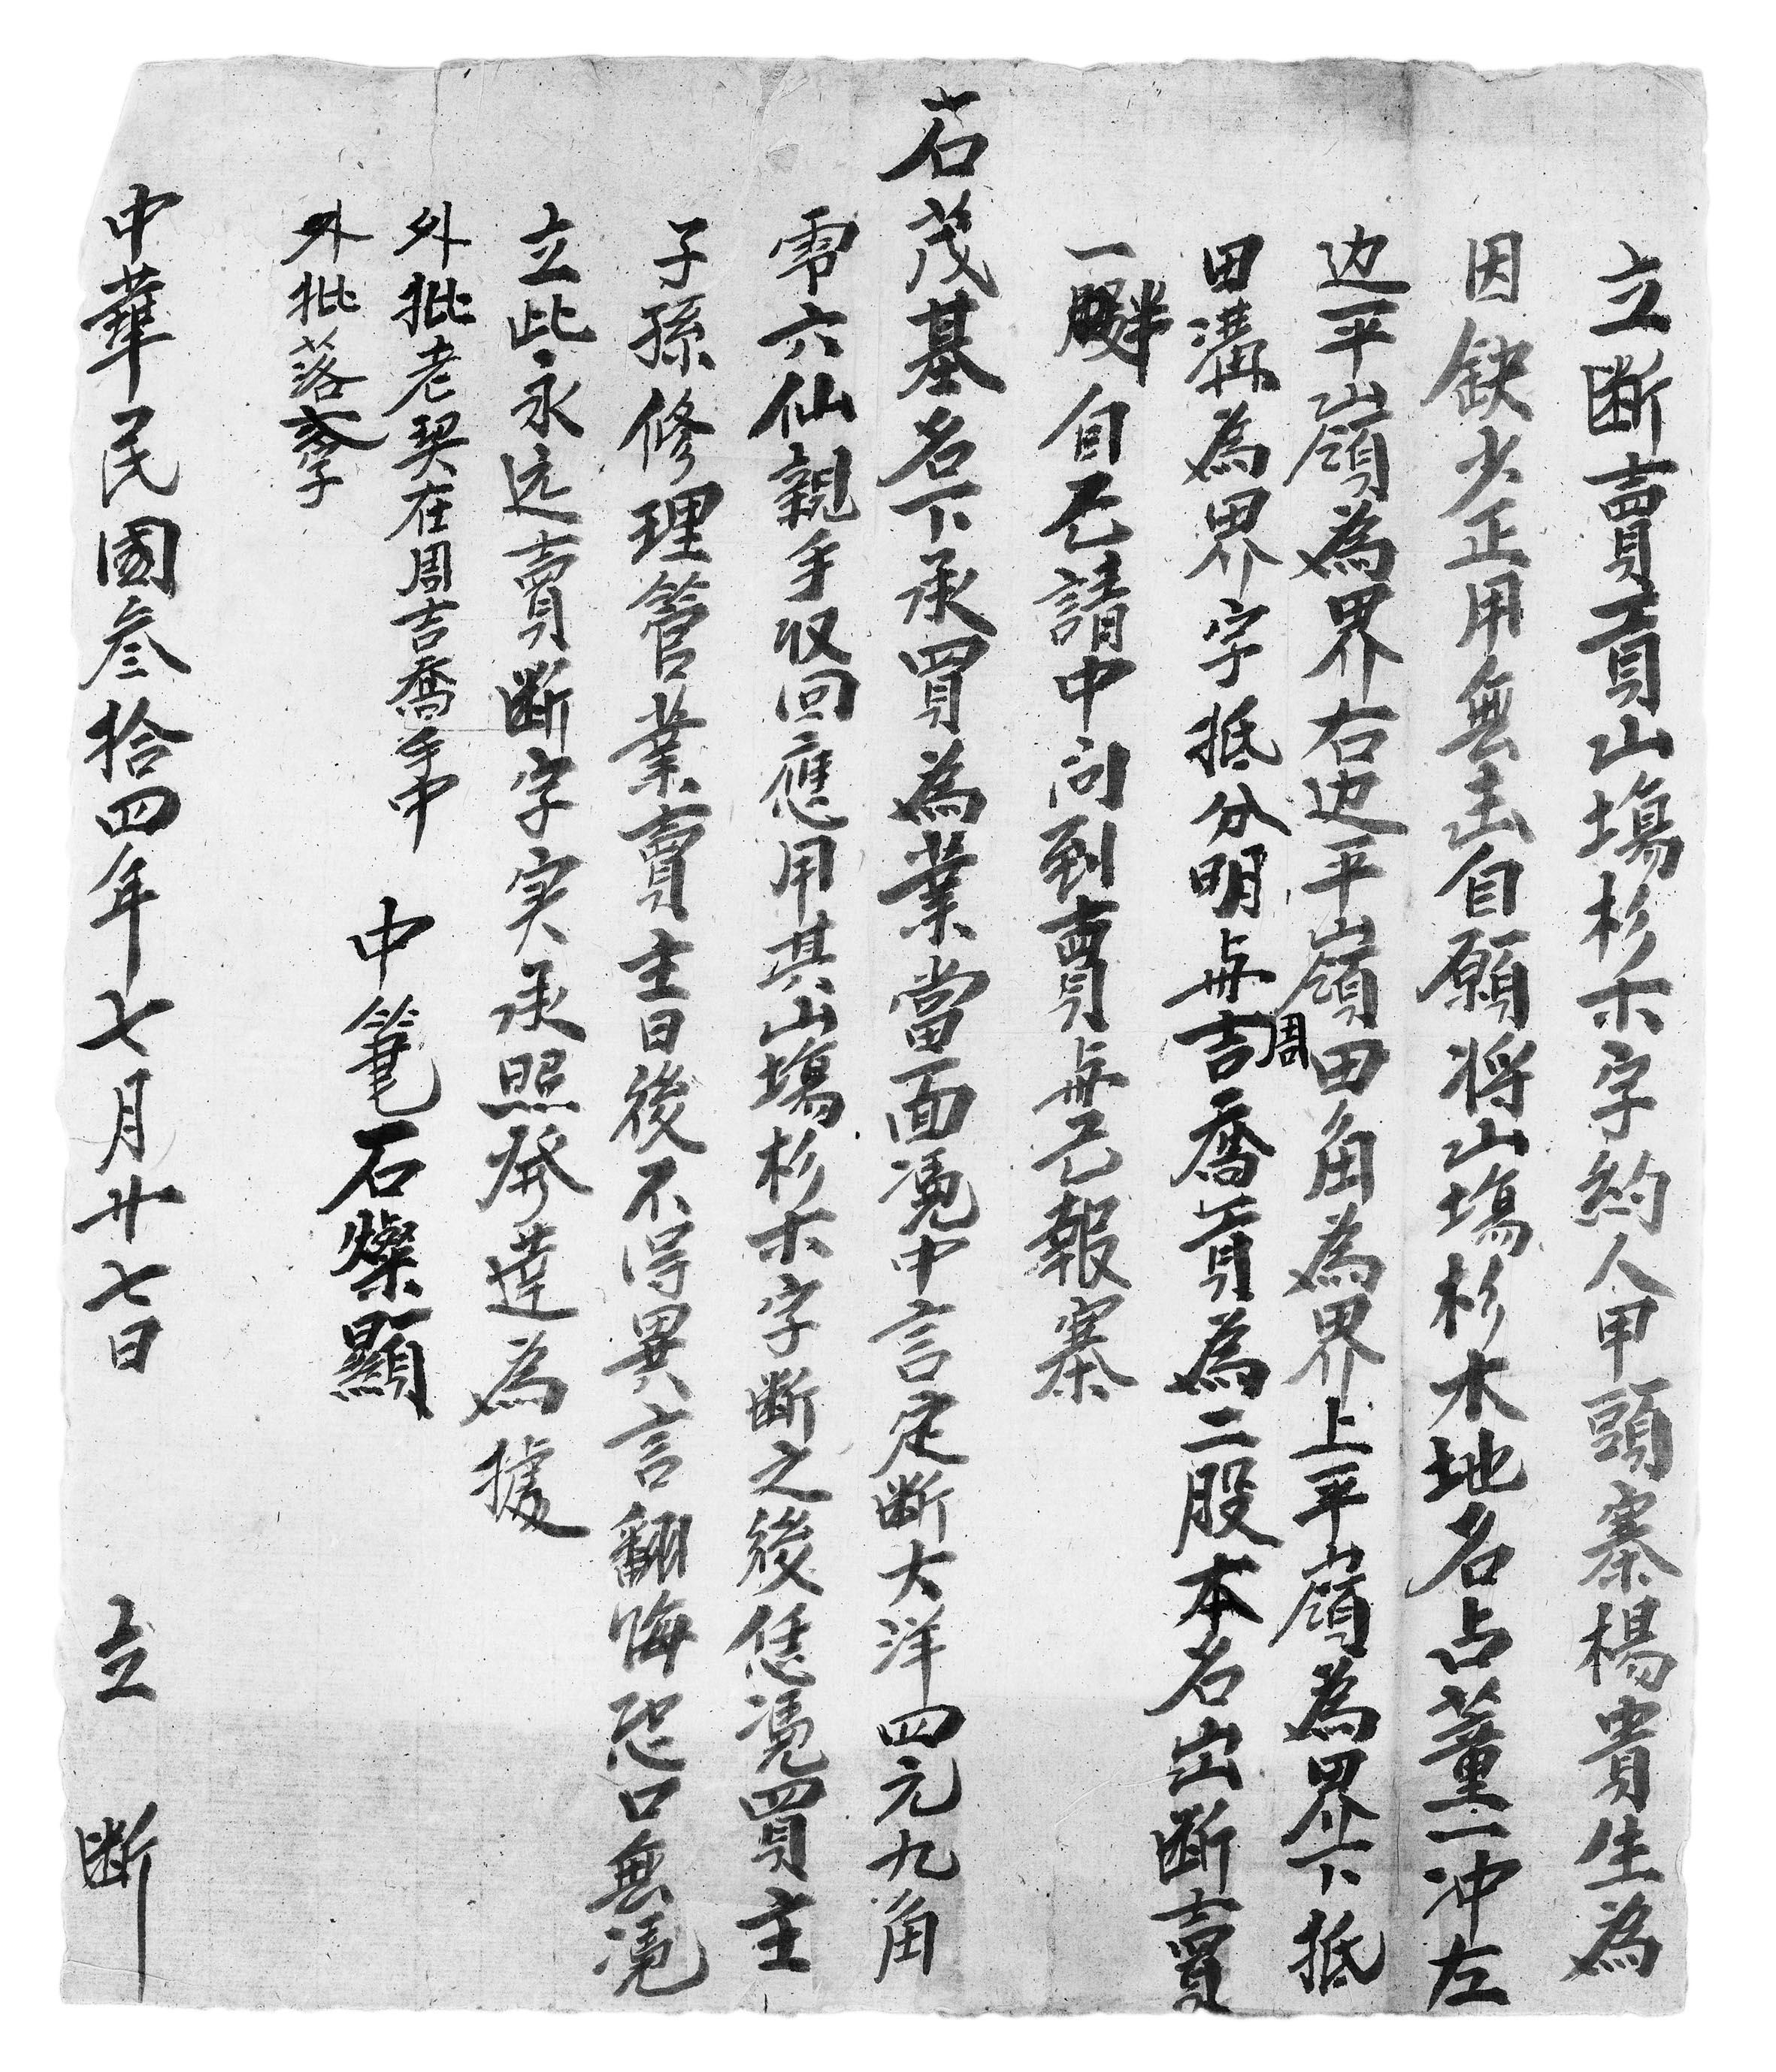 立断賣貢山塲杉木字約人甲頭寨楊貴生為
因缺少正用無击自願将山塲杉木地名占董一冲左
边平嶺為界右边平嶺田角為界上平嶺為界下抵
田溝為界字抵分明毋周吉喬貢為二股本名出断賣
一股半自己請中问到賣毋己報寨
石茂基名下承買為業當面凴中言定断大洋四元九角
零六仙親手收回應用其山塲杉木字断之後恁凴買主
子孫修理管業賣主日後不得異言翻悔恐口無凴
立此永远賣断字实承照發達為據
外批老契在周吉喬手中
外批落孝字
中筆石燦顯
中華民國叁拾四年七月廿七日 立 断